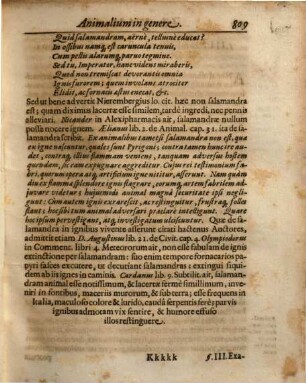 Animalium in genere. 809
Quid salamandram, aërne, tellusne educat?
In ossibus namq; est caruncula tenuis,
Cum pestis alarum, parvo tegmine.
Sed tu, Imperator, hanc videns miraberis,
Quod non tremiscat devorantis omnia
Ignis furorem; quem involans atrociter
Elidit, ac fornacis æstum enecat, &c.
Sed ut bene advertit Nierembergius loc. cit. hæc non salamandra
est; quam diximus lacertæ esse similem, tardè ingredi, nec pennis
alleviari. Nicander in Alexipharmacis ait, salamandræ nullum
posse nocere ignem. Ælianus lib. 2. de Animal. cap. 31. ita de sala-
mandra scribit. Ex animalibus tametsi salamandra non est, quæ
ex igne nascuntur, quales sunt Pyrigoni; contra tamen hunc
audet, contraq; illius flammam veniens, tanquam adversus hostem
quendam, sic eam expugnare aggreditur. Cujus rei testimonium fa-
bri, quorum opera atq; artificium igne nititur, afferunt. Nam quam
diu ex flamma splendens ignis fulget, eorumq; artem fabrilem ad-
juvare videtur
ligunt: Cum autem ignis exarescit, ac restinguitur, frustraq; folles
flant; hostile tum animal adversari præsidere intelligunt. Quare
Que de sala-
mandra in ignibus vivente asserunt citati hactenus Auctores,
admittit etiam D. Augustinus lib. 21. de Civit. cap. 4. Olympiodorus
in Comment. libri 4. Meteororum ait, non esse fabulam de ignis
extinctione per salamandram: suo enim tempore fornacarios
papyri falces excutere, ut decurrat salamandra; extingui siqui-
dem ab iis ignes in camino. Cardanus lib. 9. Subtilit. ait, salaman-
dram animal esse notissimum, & lacertæ fermè simillimum, inve-
niri in fontibus, maceriis murorum, & sub terra; esse frequens in
Italia, maculoso colore & lurido, caudâ serpentis fere; parvis
ignibus admotam vix sentire, & humore effuso
illos restinguere.
Kkkkk f. III. Exa-